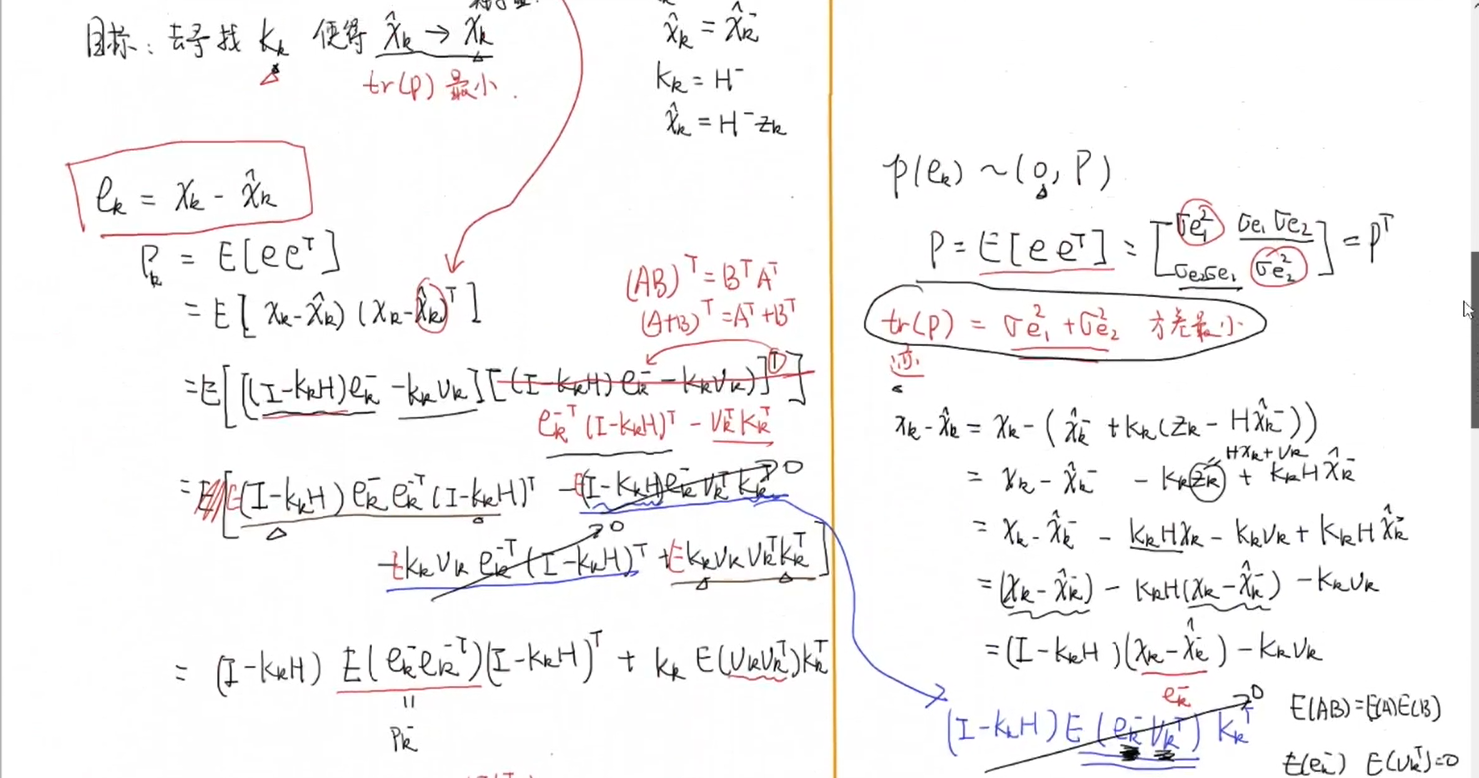 目标：去寻找 Kk 使得 x̂k → xk
tr(P) 最小.
x̂k = x̂k⁻
Kk = H⁻
x̂k = H⁻zk
ek = xk - x̂k
Pk = E[eeᵀ]
= E[xk-x̂k)(xk-x̂k)ᵀ]
(AB)ᵀ = BᵀAᵀ
(A+B)ᵀ = Aᵀ+Bᵀ
= E[[(I-KkH)ek⁻ - Kkvk][(I-KkH)ek⁻ - Kkvk)]ᵀ]
ek⁻ᵀ(I-KkH)ᵀ - vkᵀKkᵀ
= E[E(I-KkH)ek⁻ek⁻ᵀ(I-KkH)ᵀ - E(I-KkH)ek⁻vkᵀKkᵀ → 0
- EKkvkek⁻ᵀ(I-KkH)ᵀ → 0 + EKkvkvkᵀKkᵀ]
= (I-KkH) E(ek⁻ek⁻ᵀ)(I-KkH)ᵀ + Kk E(vkvkᵀ)Kkᵀ
=
Pk⁻
p(ek) ~ (0, P)
P = E[eeᵀ] = [σe₁² σe₁σe₂
σe₂σe₁ σe₂²] = Pᵀ
tr(P) = σe₁² + σe₂² 方差最小
迹
xk - x̂k = xk - (x̂k⁻ + Kk(zk - Hx̂k⁻))
Hxk+vk
= xk - x̂k⁻ - Kkzk + KkHx̂k⁻
= xk - x̂k⁻ - KkHxk - Kkvk + KkHx̂k⁻
= (xk - x̂k⁻) - KkH(xk - x̂k⁻) - Kkvk
= (I-KkH)(xk - x̂k⁻) - Kkvk
ek⁻
(I-KkH)E(ek⁻vkᵀ)Kkᵀ → 0
E(AB)=E(A)E(B)
E(ek⁻) E(vkᵀ)=0